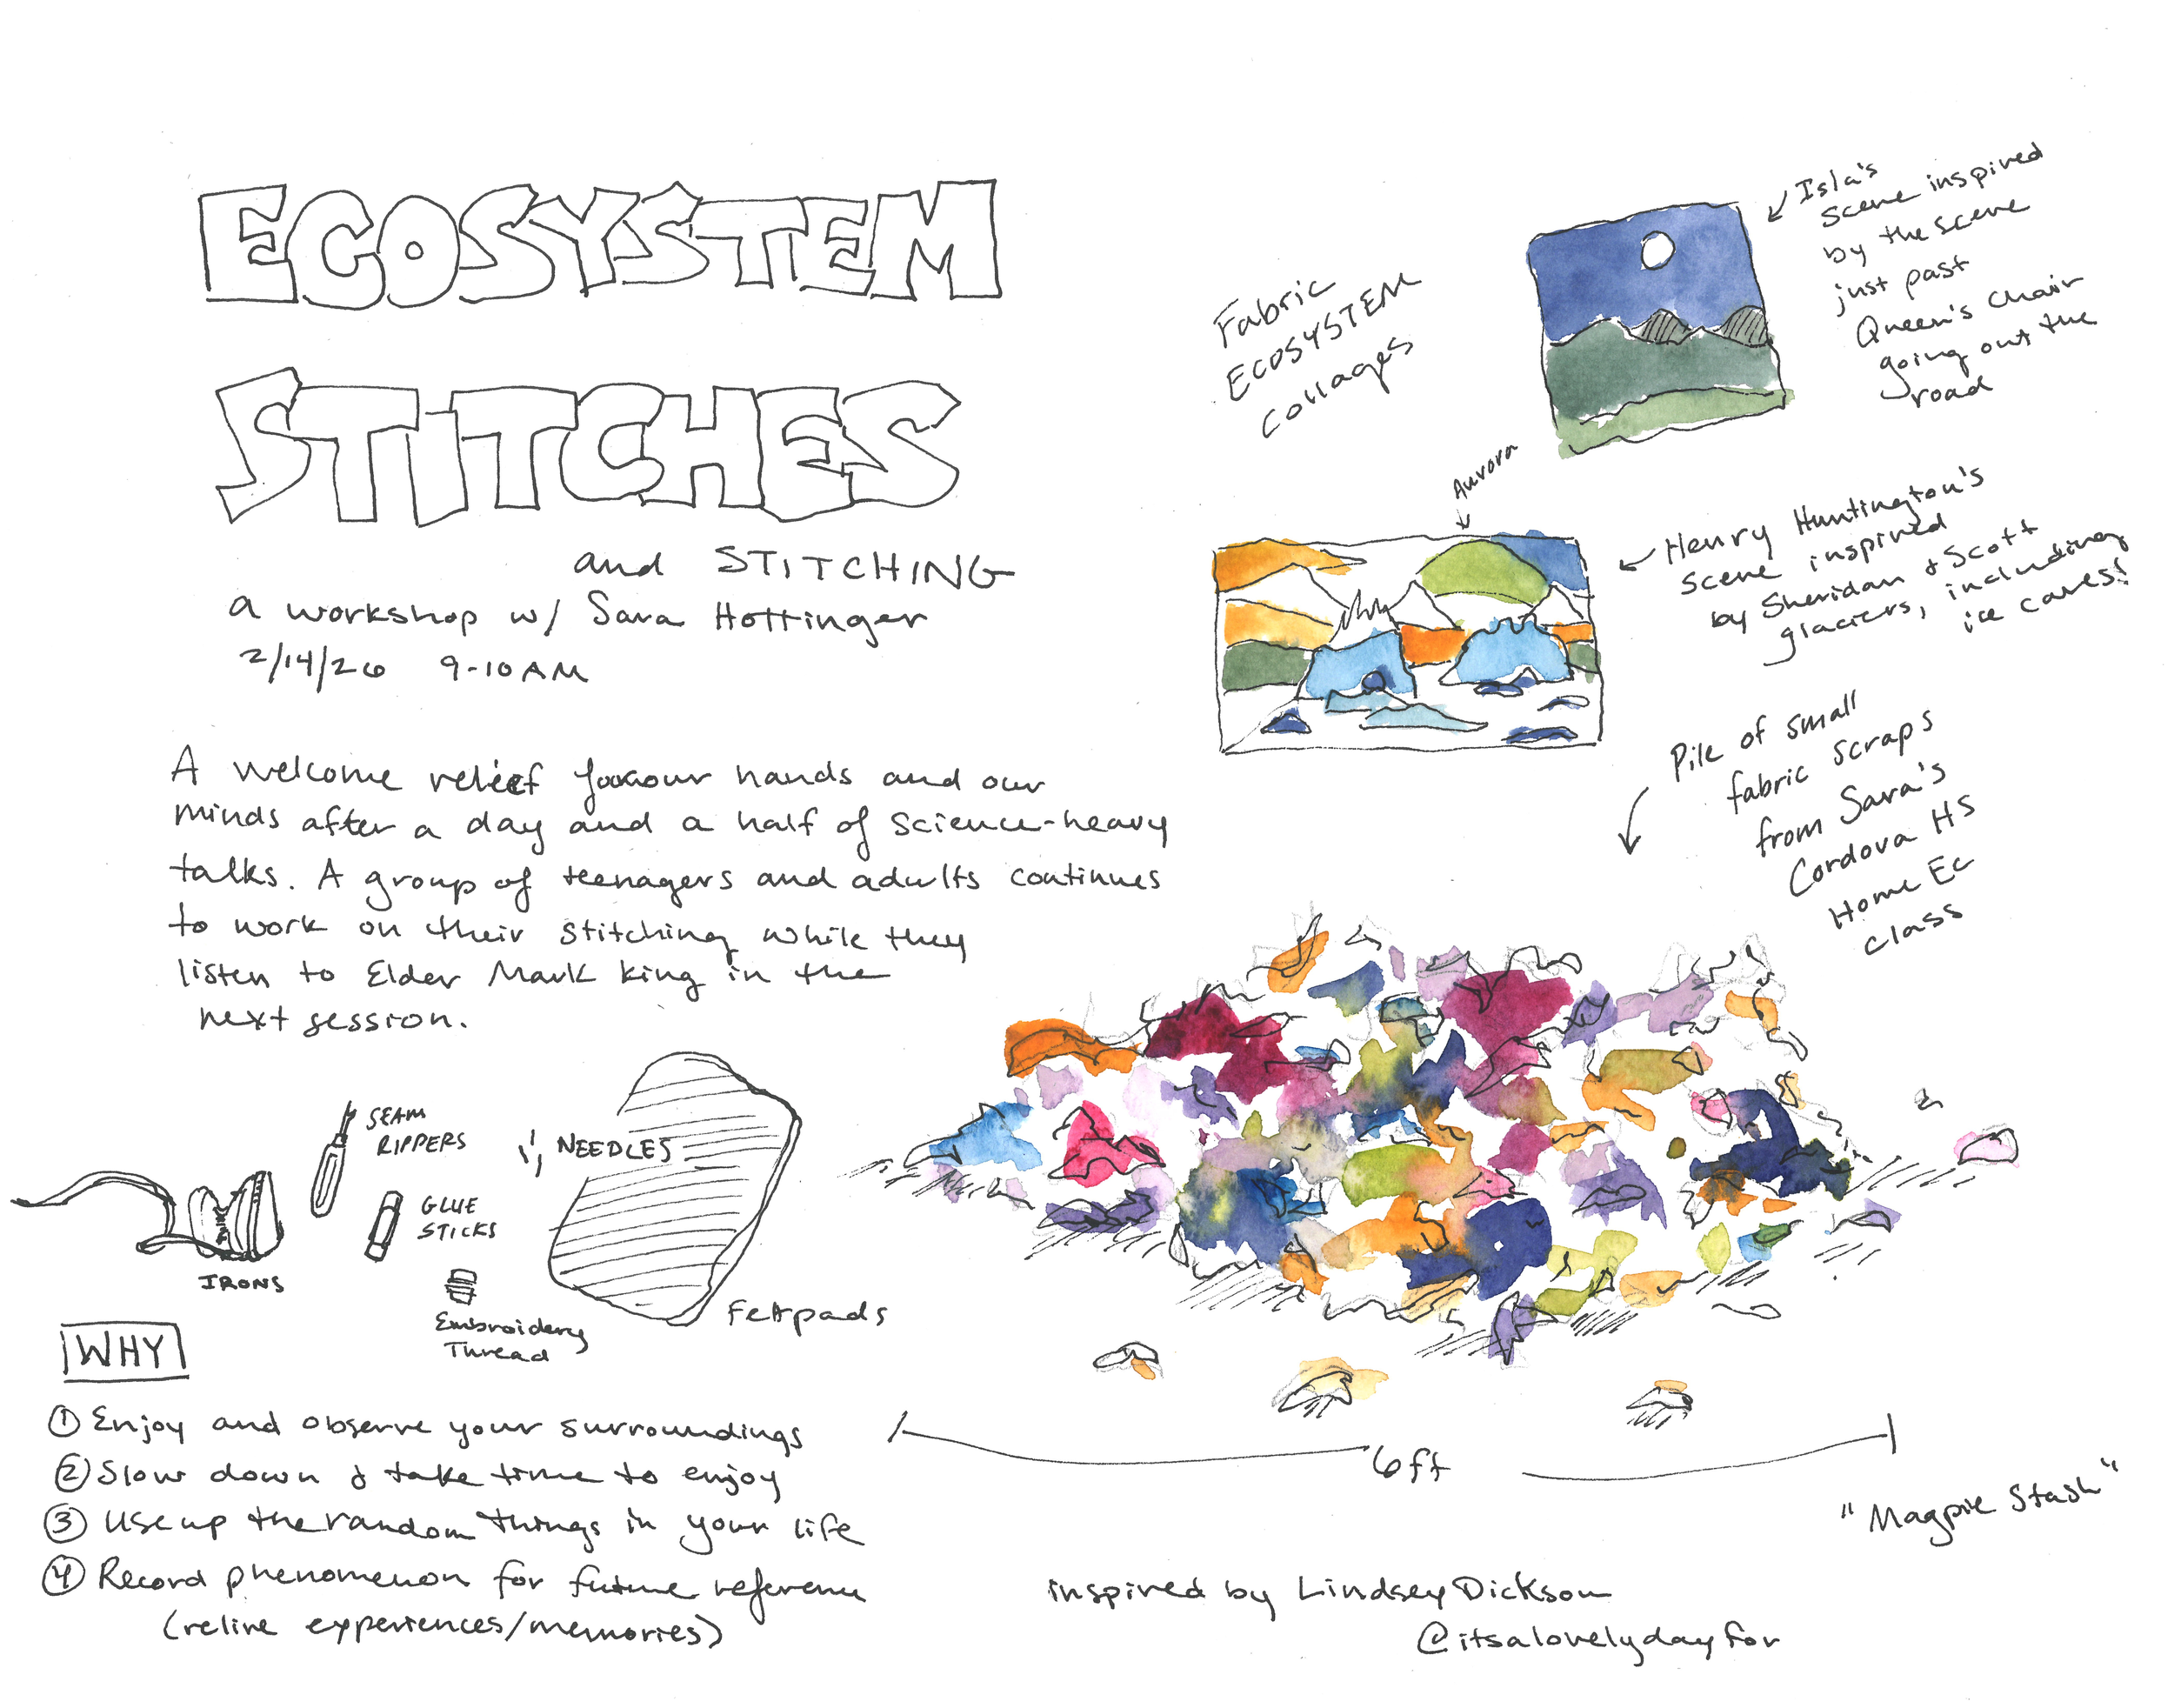 ECOSYSTEM
STITCHES
and STITCHING
a workshop w/ Sara Hottinger
2/14/26 9-10AM
A welcome relief for our hands and our
minds after a day and a half of science-heavy
talks. A group of teenagers and adults continues
to work on their stitching while they
listen to Elder Mark King in the
next session.
SEAM
RIPPERS
NEEDLES
GLUE
STICKS
IRONS
Embroidery
Thread
Feltpads
WHY
① Enjoy and observe your surroundings
② Slow down & take time to enjoy
③ Use up the random things in your life
④ Record phenomenon for future reference
(relive experiences/memories)
Fabric
ECOSYSTEM
collages
Isla's
scene inspired
by the scene
just past
Queen's Chair
going out the
road
Aurora
Henry Huntington's
scene inspired
by Sheridan & Scott
glaciers, including
ice caves!
Pile of small
fabric scraps
from Sara's
Cordova HS
Home Ec
class
6ft
"Magpie Stash"
inspired by Lindsey Dickson
@itsalovelydayfor